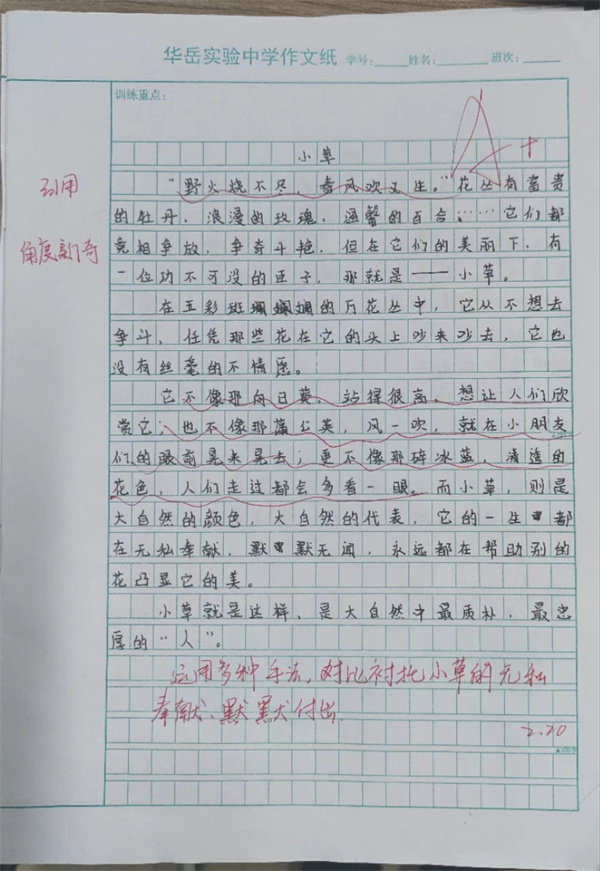 华岳实验中学作文纸 学号: 姓名: 班次:
训练重点:
A+
小草
引用
角度新奇
“野火烧不尽，春风吹又生。”花丛有富贵
的牡丹，浪漫的玫瑰，温馨的百合……它们都
竞相争放，争奇斗艳，但在它们的美丽下，有
一位功不可没的臣子，那就是——小草。
在五彩斑斓的万花丛中，它从不想去
争斗，任凭那些花在它的头上吵来吵去，它也
没有丝毫的不情愿。
它不像那向日葵，站得很高，想让人们欣
赏它；也不像那蒲公英，风一吹，就在小朋友
们的眼前晃来晃去；更不像那碎冰蓝，清透的
花色，人们走过都会多看一眼。而小草，则是
大自然的颜色，大自然的代表，它的一生都
在无私奉献，默默无闻，永远都在帮助别的
花凸显它的美。
小草就是这样，是大自然中最质朴，最忠
厚的“人”。
运用多种手法，对比衬托小草的无私
奉献、默默付出
2.20